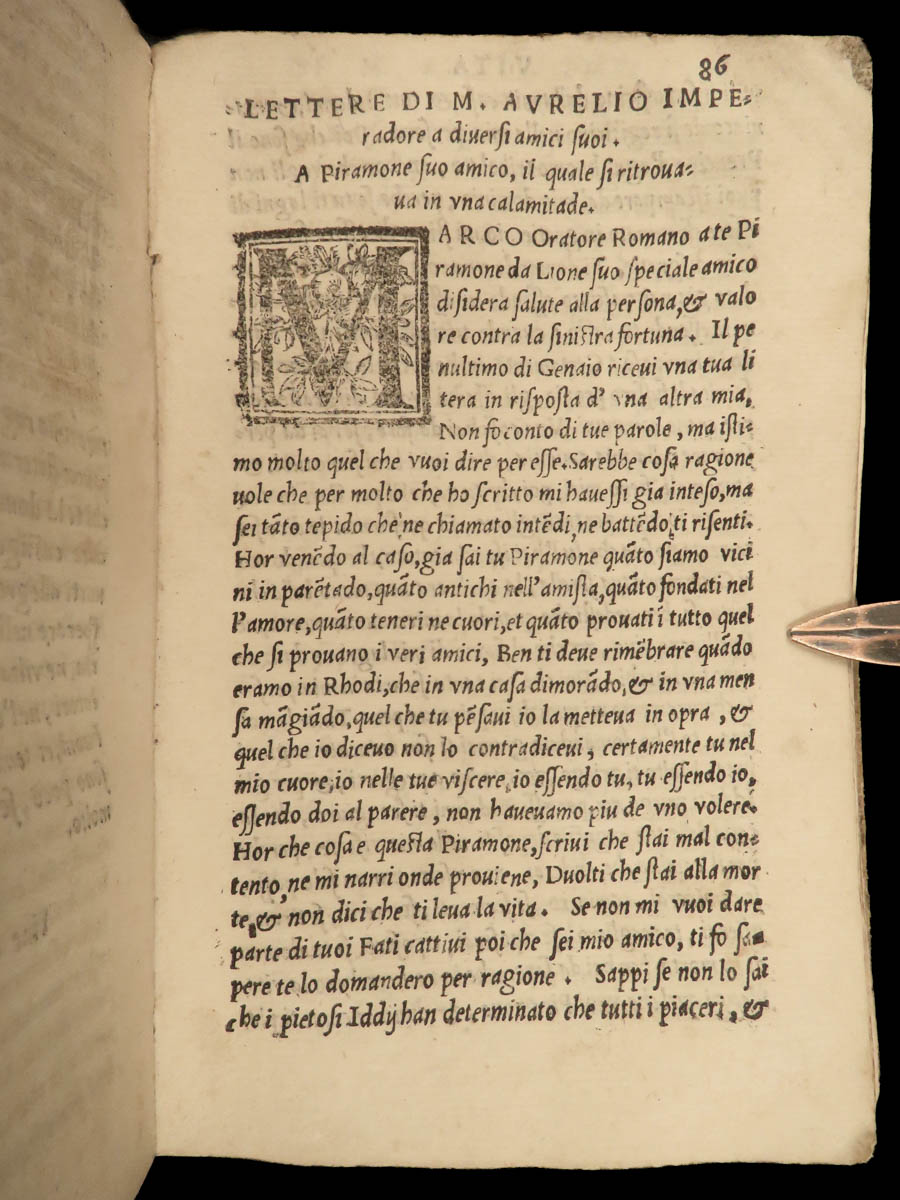 86
LETTERE DI M. AVRELIO IMPE-
radore a diuersi amici suoi.
A Piramone suo amico, il quale si ritroua-
ua in vna calamitade.
MARCO Oratore Romano a te Pi
ramone da Lione suo speciale amico
disidera salute alla persona, & valo
re contra la sinistra fortuna. Il pe
nultimo di Genaio riceui vna tua li
tera in risposta d' vna altra mia.
Non fo conto di tue parole, ma isti-
mo molto quel che vuoi dire per esse. Sarebbe cosa ragione
uole che per molto che ho scritto mi hauessi gia inteso, ma
sei tãto tepido che ne chiamato intẽdi, ne battẽdo ti risenti.
Hor venẽdo al caso, gia sai tu Piramone quãto siamo vici
ni in parẽtado, quãto antichi nell'amista, quãto fondati nel
l'amore, quãto teneri ne cuori, et quãto prouati ĩ tutto quel
che si prouano i veri amici, Ben ti deue rimẽbrare quãdo
eramo in Rhodi, che in vna casa dimorãdo, & in vna men
sa mãgiãdo, quel che tu pẽsaui io la metteua in opra, &
quel che io diceuo non lo contradiceui, certamente tu nel
mio cuore, io nelle tue viscere, io essendo tu, tu essendo io,
essendo doi al parere, non haueuamo piu de vno volere.
Hor che cosa e questa Piramone, scriui che stai mal con-
tento, ne mi narri onde prouiene, Duolti che stai alla mor
te, & non dici che ti leua la vita. Se non mi vuoi dare
parte di tuoi Fati cattiui poi che sei mio amico, ti fo sa-
pere te lo domandero per ragione. Sappi se non lo sai
che i pietosi Iddij han determinato che tutti i piaceri, &